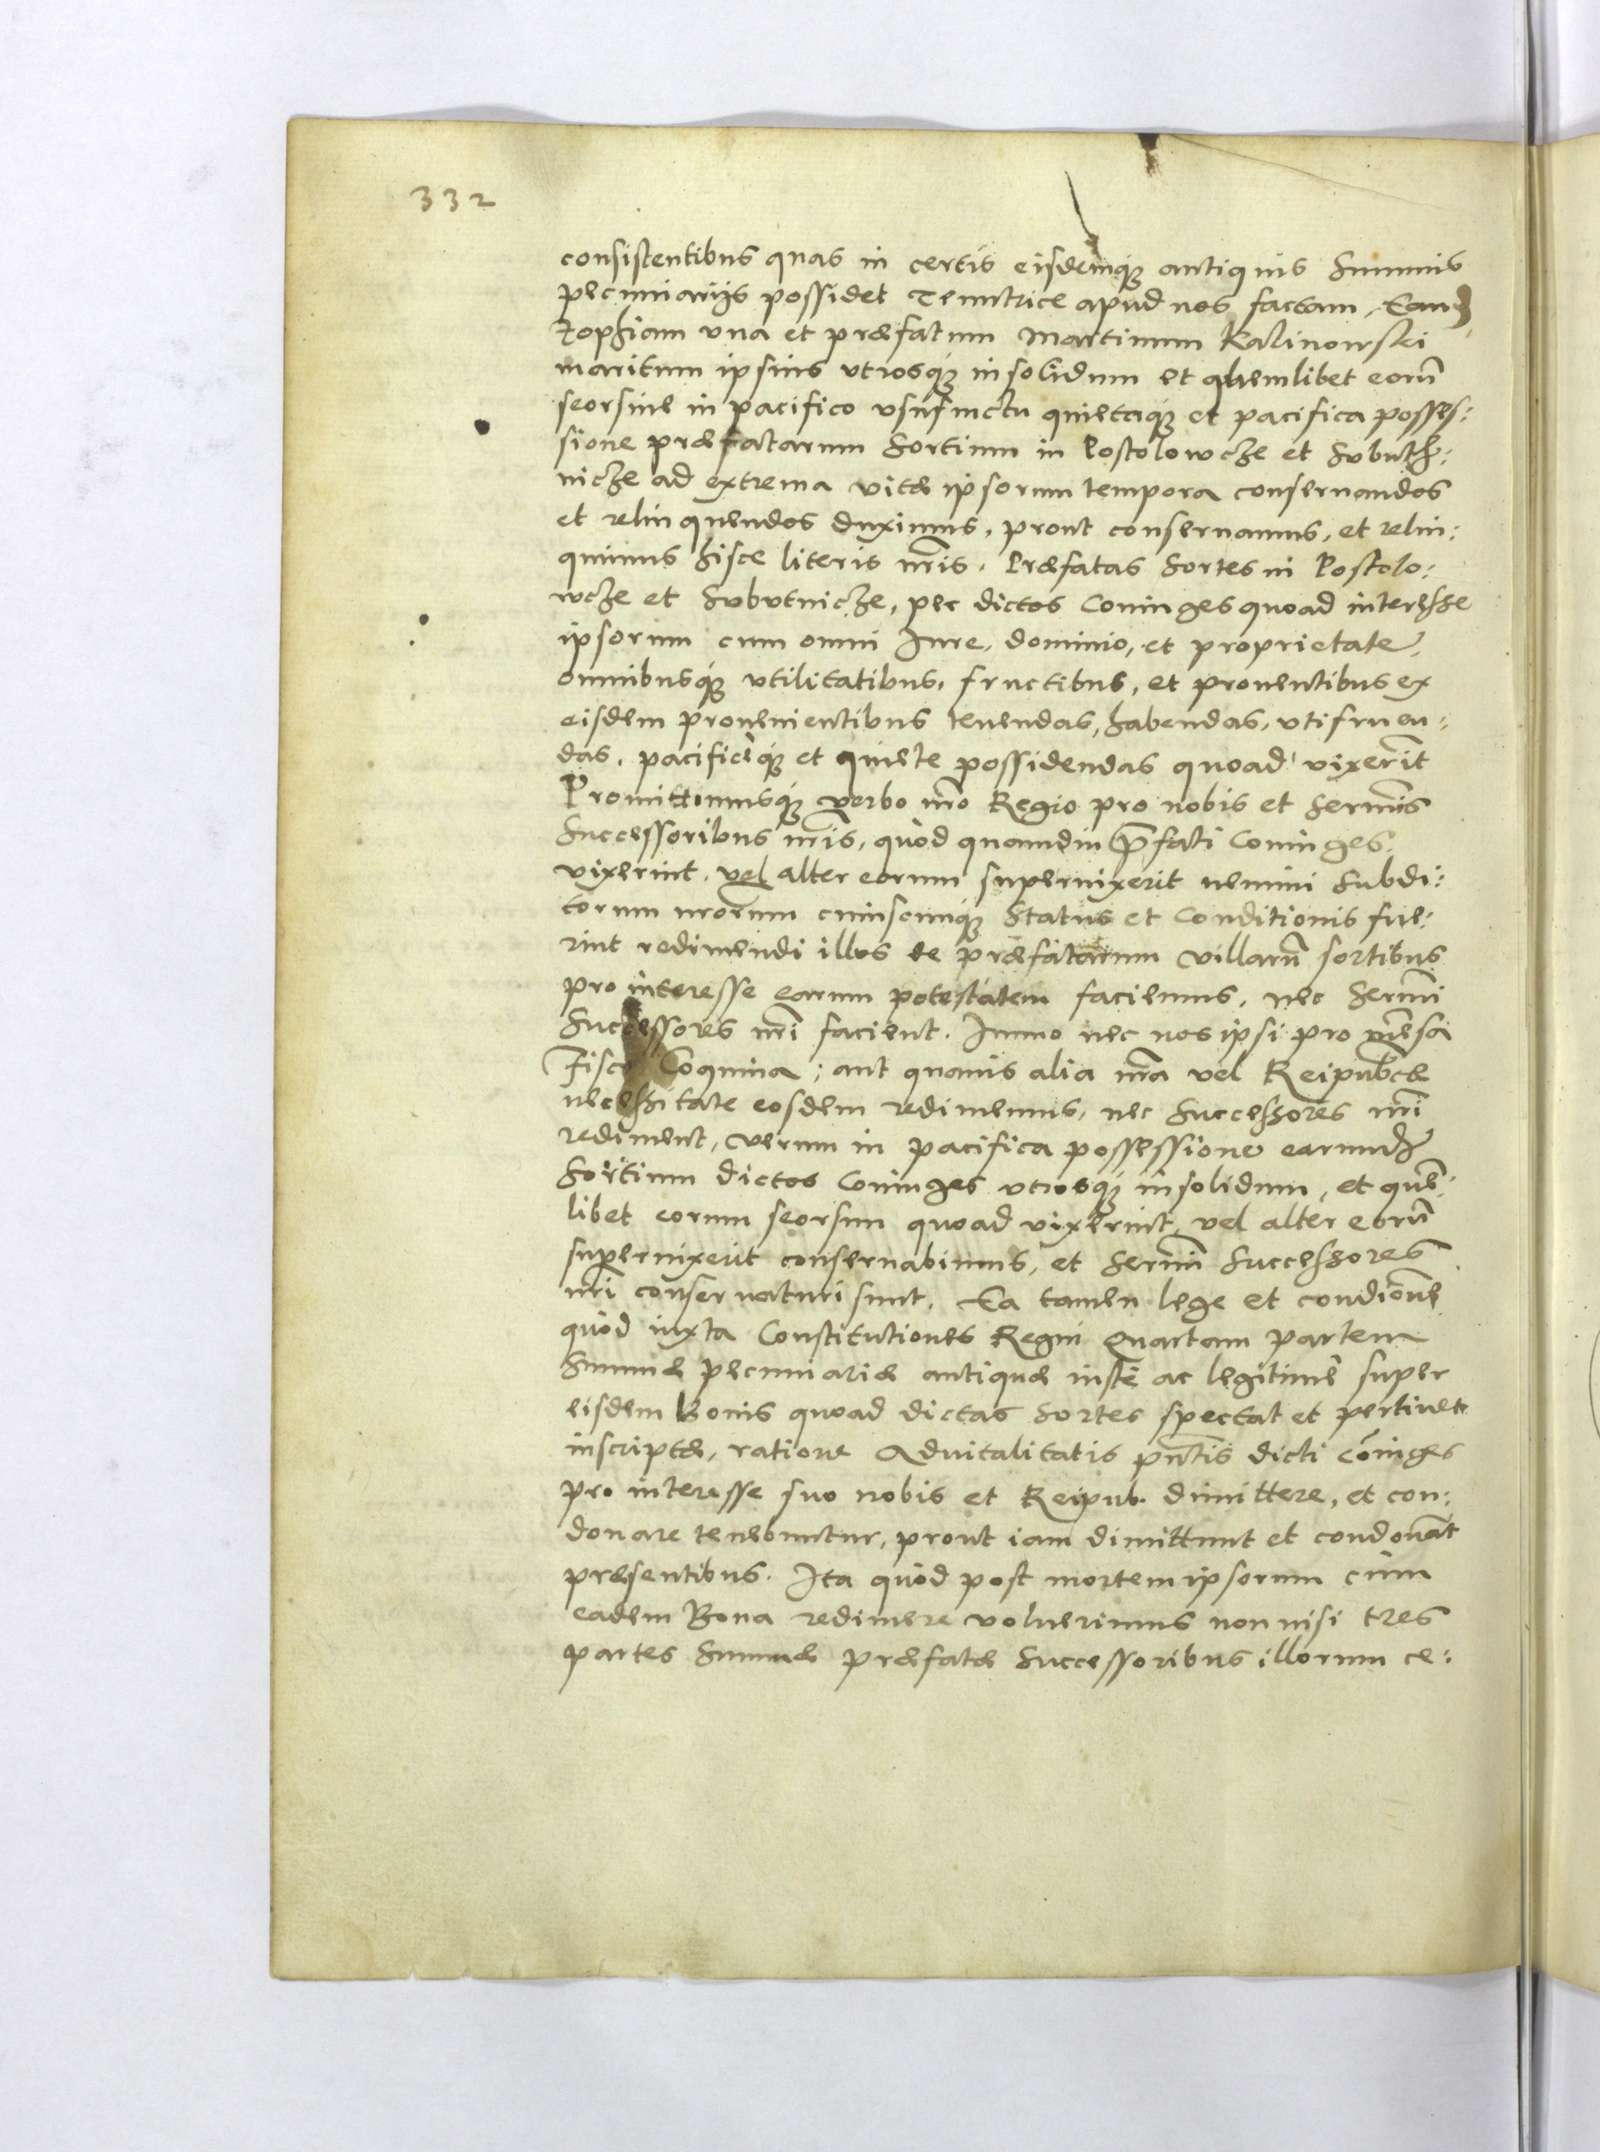 332
consistentibus quas in certis eisdemq́ꝫ antiquis Summis
pecuniarijs possidet Tenutrice apud nos factam, Eandꝫ
Zophiam una et præfatum Martinum Kalinowski
maritum ipsius utrosq́ꝫ insolidum et quemlibet eorū
seorsive in pacifico usufructu quietaq́ꝫ et pacifica posses:
sione præfatarum Sortium in Postolowcze et Subuth:
nicze ad extrema vitæ ipsorum tempora conservandos
et relinquendos duximus, prout conservamus, et relin:
quimus hisce literis nr̄is. Præfatas Sortes in Postolo:
wcze et Subutnicze, per dictos Coniuges quoad interesse
ipsorum cum omni Iure, dominio, et proprietate,
omnibusq́ꝫ utilitatibus, fructibus, et proventibus ex
eisdem provenientibus tenendas, habendas, utifruen:
das, pacificèq́ꝫ et quiete possidendas quoad vixerīt
Promittimusq́ꝫ verbo nr̄o Regio pro nobis et Serm̄is
Successoribus nr̄is, quod quamdiu p̄fati Coniuges
vixerint, vel alter eorum supervixerit nemini Subdi:
torum nrōrum cuiuscunq́ꝫ Status et Conditionis fue:
rint redimendi illos de præfatarum Villarū sortibus
pro interesse earum potestatem faciemus, nec Serm̄i
Successores nr̄i facient. Immo nec nos ipsi pro mensa
Fisco Coquina; aut quavis alia nr̄a vel Reipub̄cæ
necessitate eosdem redimemus, nec Successores nr̄i
rediment, verum in pacifica possessione earundꝫ
Sortium dictos Coniuges utrosq́ꝫ insolidum, et quē:
libet eorum seorsim quoad vixerint, vel alter eorū
supervixerit conservabimus, et Serm̄i Successores
nr̄i conservaturi sunt. Ea tamen lege et condiōne
quod iuxta Constitutiones Regni Quartam partem
Summæ pecuniariæ antiquæ iustè ac legitimè super
eisdem Bonis quoad dictas Sortes spectat et pertinet
inscriptæ, ratione Advitalitatis pn̄tis dicti Cōniuges
pro interesse suo nobis et Reipub. dimittere, et con:
donare tenebuntur, prout iam dimittunt et condonāt
præsentibus. Ita quòd post mortem ipsorum cùm
eadem Bona redimere voluerimus non nisi tres
partes Summæ præfatæ Successoribus illorum ce: